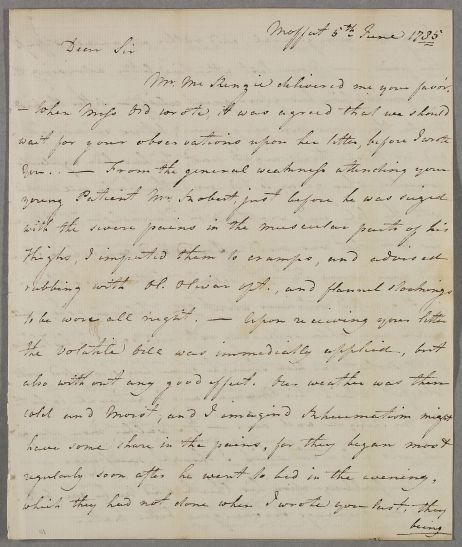 Moffat 5th June 1785
Dear Sir
Mr. McKenzie delivered me your favor.
– When Miss Ord wrote it was agreed that we should
wait for your observations upon her letter, before I wrote
you.. — From the general weakness attending your
young Patient Mr. just before he was seized
with the severe pains in the muscular parts of his
thighs, I imputed them to cramps, and advised
rubbing with Ol. Olivar opt., and flannel stockings
to be wore all night. — Upon receiving your letter
the Volatile Oil was immediately applied, but
also without any good effect. Our weather was then
cold and moist, and I imagind Rheumatism might
have some share in the pains, for they began most
regularly soon after he went to bed in the evening,
which they had not done when I wrote you last, they
being